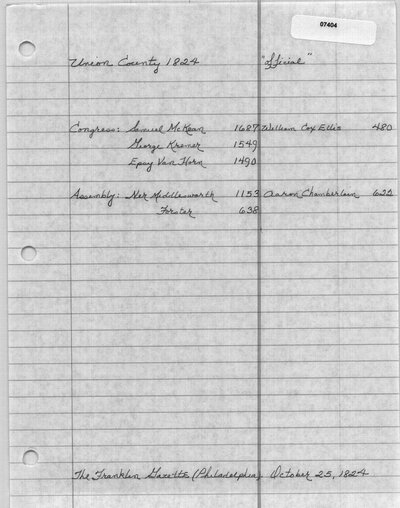 07404
Union County 1824 "official"
Congress: Samuel McKean 1687 William Cox Ellis 480
George Kremer 1549
Epsy Van Horn 1490
Assembly: Ner Middlesworth 1153 Aaron Chamberlain 622
Forster 638
The Franklin Gazette (Philadelphia). October 25, 1824